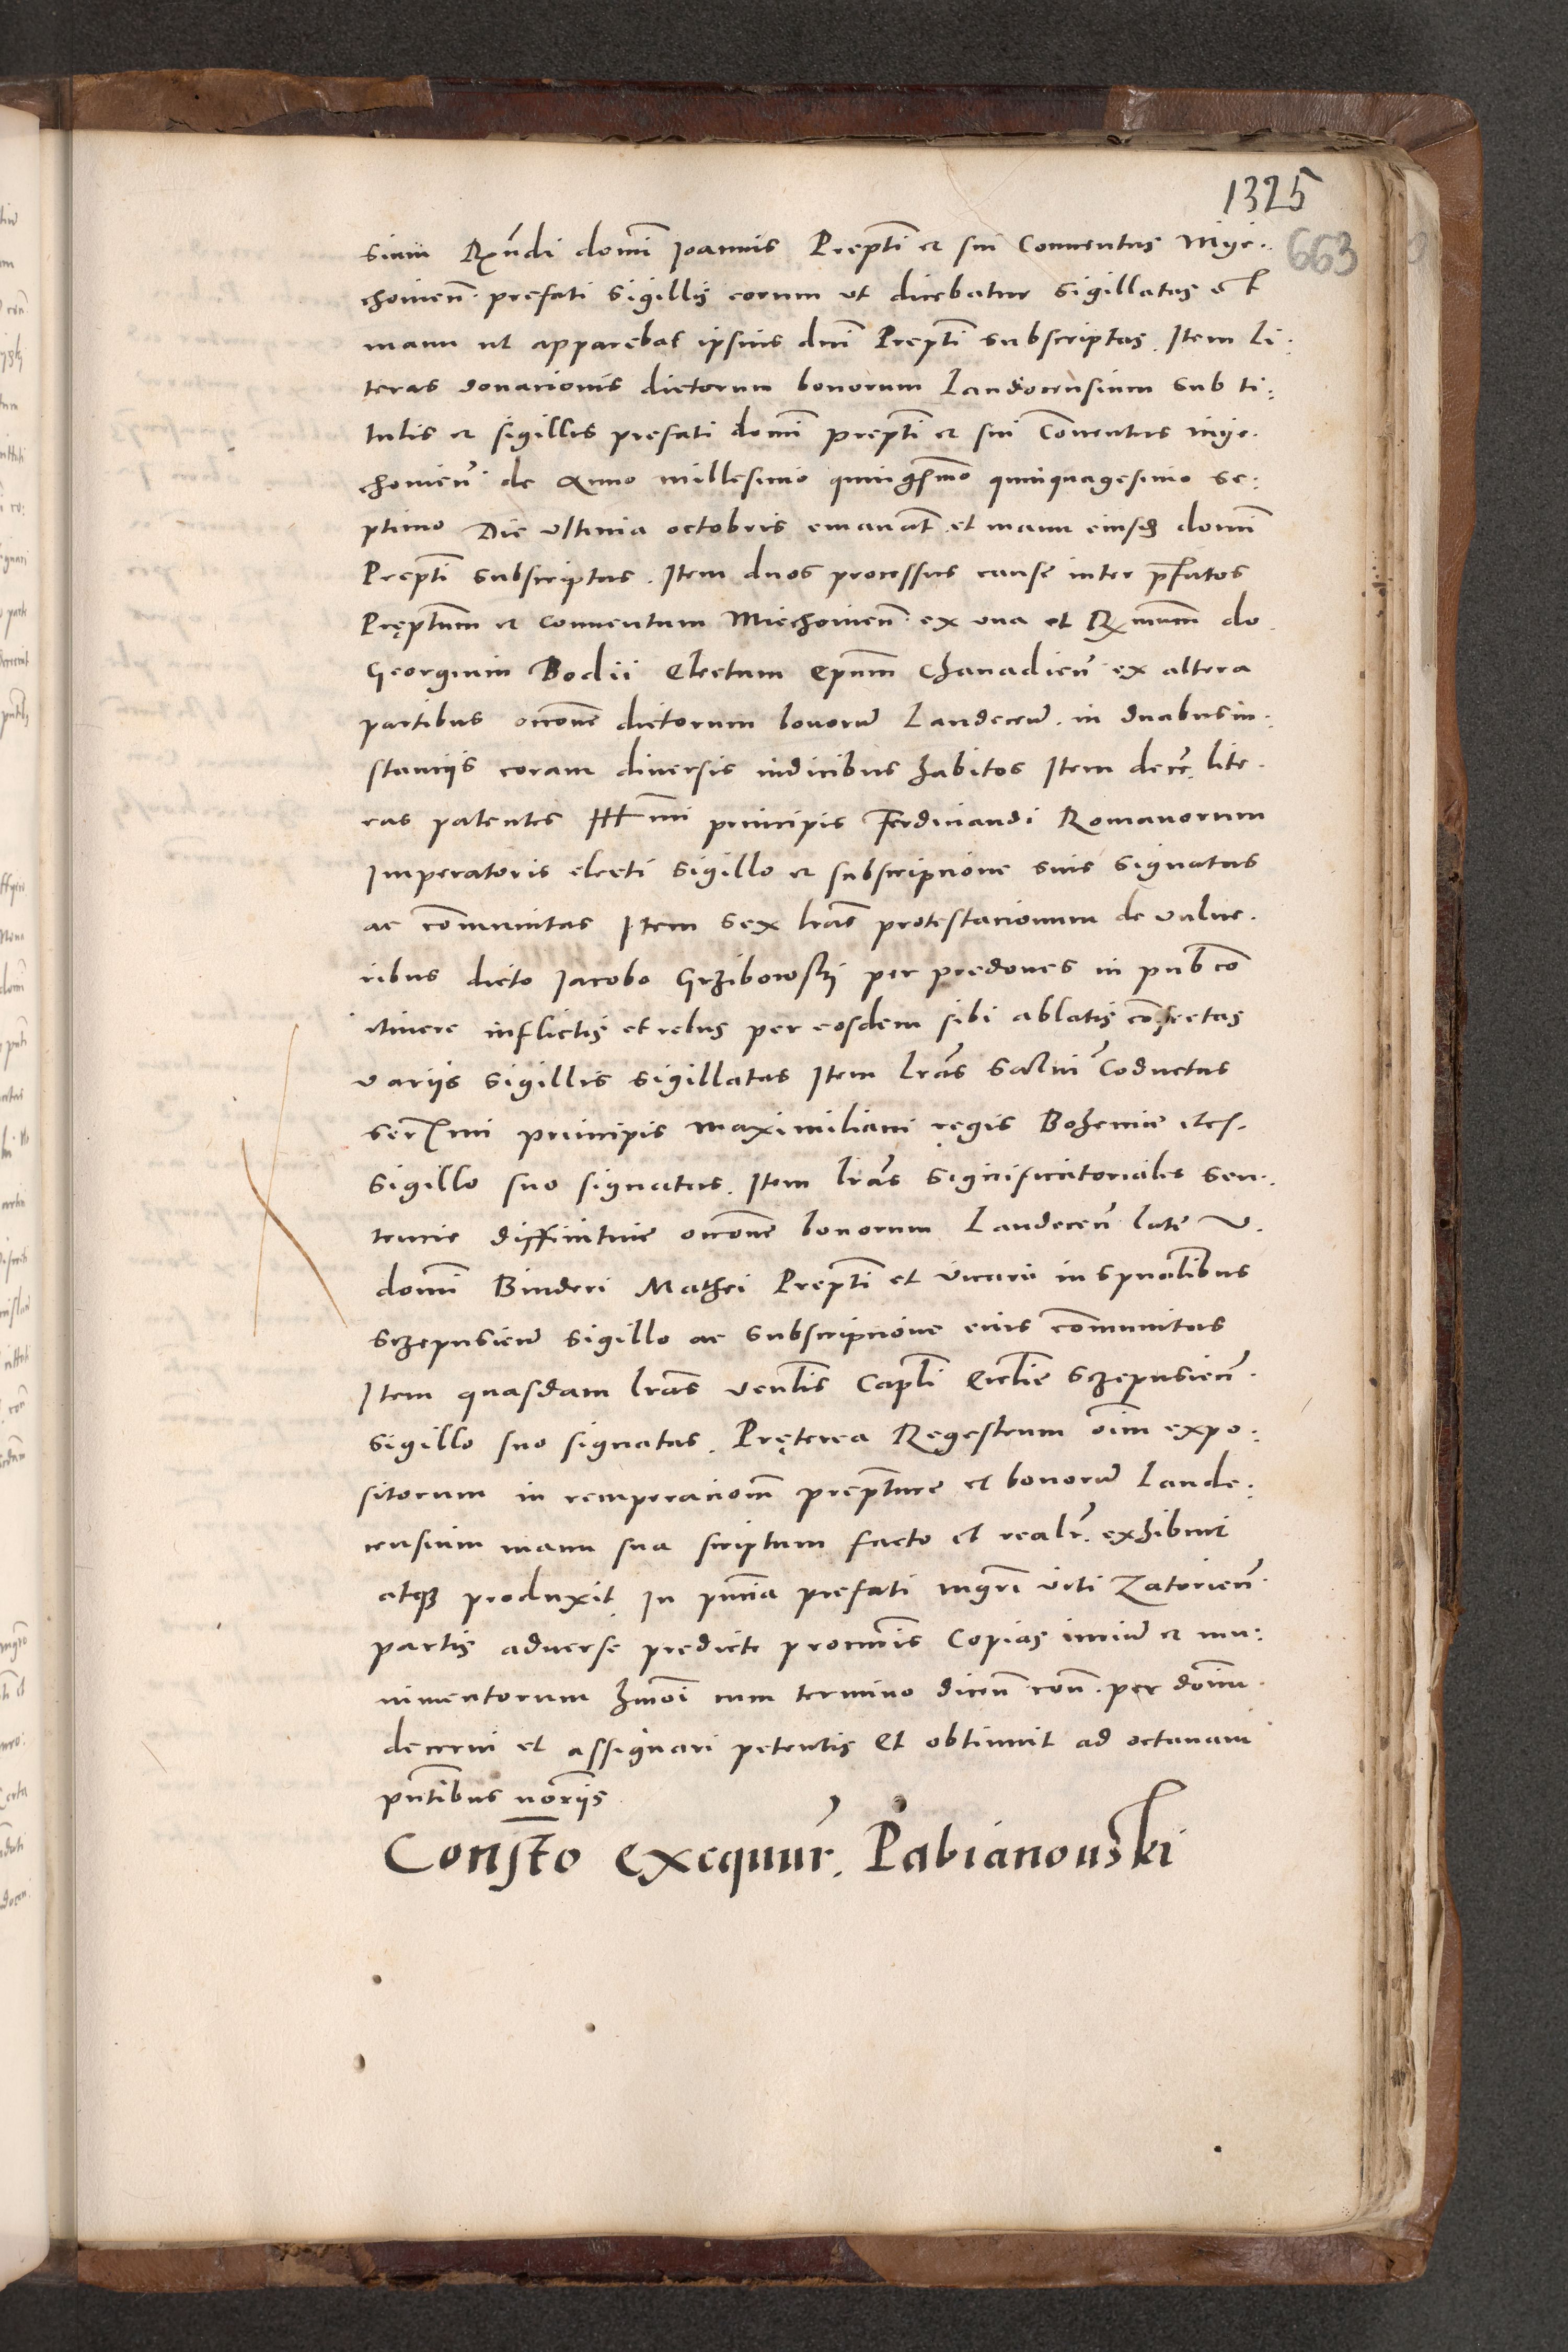 1325
663
sium Rndi domi Joannis Prepti et sui Conventus Myie-
chovien. prefati sigillis eorum ut dicebatur sigillatas et
manu ut apparebat ipsius dni Prepti subscriptas. Item li:
teras donacionis dictorum bonorum Landocensium sub ti:
tulis et sigillis prefati domi prepti et sui Conventus Myie-
chovien. de Anno millesimo quingesmo quinquagesimo se:
ptimo Die ultima octobris emanat. et manu eiusdem domi
Prepti subscriptas. Item duos processus cause inter prfatos
Pręptum et conventum Miechovien. ex una et Rmum do.
Georgium Bodii Electum Epum Chanadien ex altera
partibus occone dictorum bonorum Landecen. in duabus in:
stanciis coram diversis iudicibus habitos Item decr. lite-
ras patentes mi principis Ferdinandi Romanorum
Imperatoris electi sigillo et subscripcione suis signatas
ac communitas Item sex lras protestacionum de vulne-
ribus dicto Jacobo Grzibowski per predones in publico
itinere inflictis et rebus per eosdem sibi ablatis confectas
variis sigillis sigillatas Item Lras Salvi Coductas
sermi principis Maximiliani regis Bohemie etc.
sigillo suo signatas. Item lras significatoriales sen-
tencie diffinitive occone bonorum Landecen late V.
domi Binderi Mathei Prepti et vicarii in spualibus
Sczepusien sigillo ac subscripcione eius communitas
Item quasdam lras venlis Capli Eccliе Sczepusien.
sigillo suo signatas. Pręterea Regestrum oim expo:
sitorum in reemperaciom prepture et bonorum Lande:
censium manu sua scriptum facto et realr. exhibuit
atque produxit In pncia prefati mgri Viti Zatorien.
partis adverse predicte procuris Copias iurium et mu:
nimentorum hmoi cum termino dicen con. per domin.
decerni et assignari petentis Et obtinuit ad octavam
pntibus noriis
Consto exequur. Pabianowski